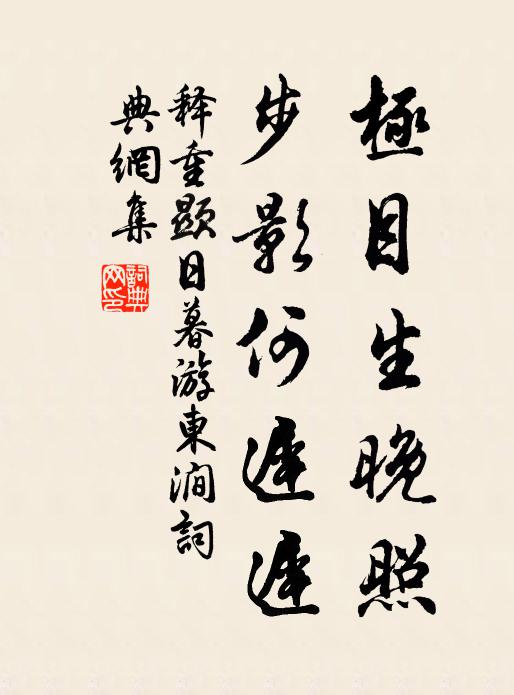 極目生晚照
步影何遲遲
释重顯日暮游東澗詞
典網集
詞典网印